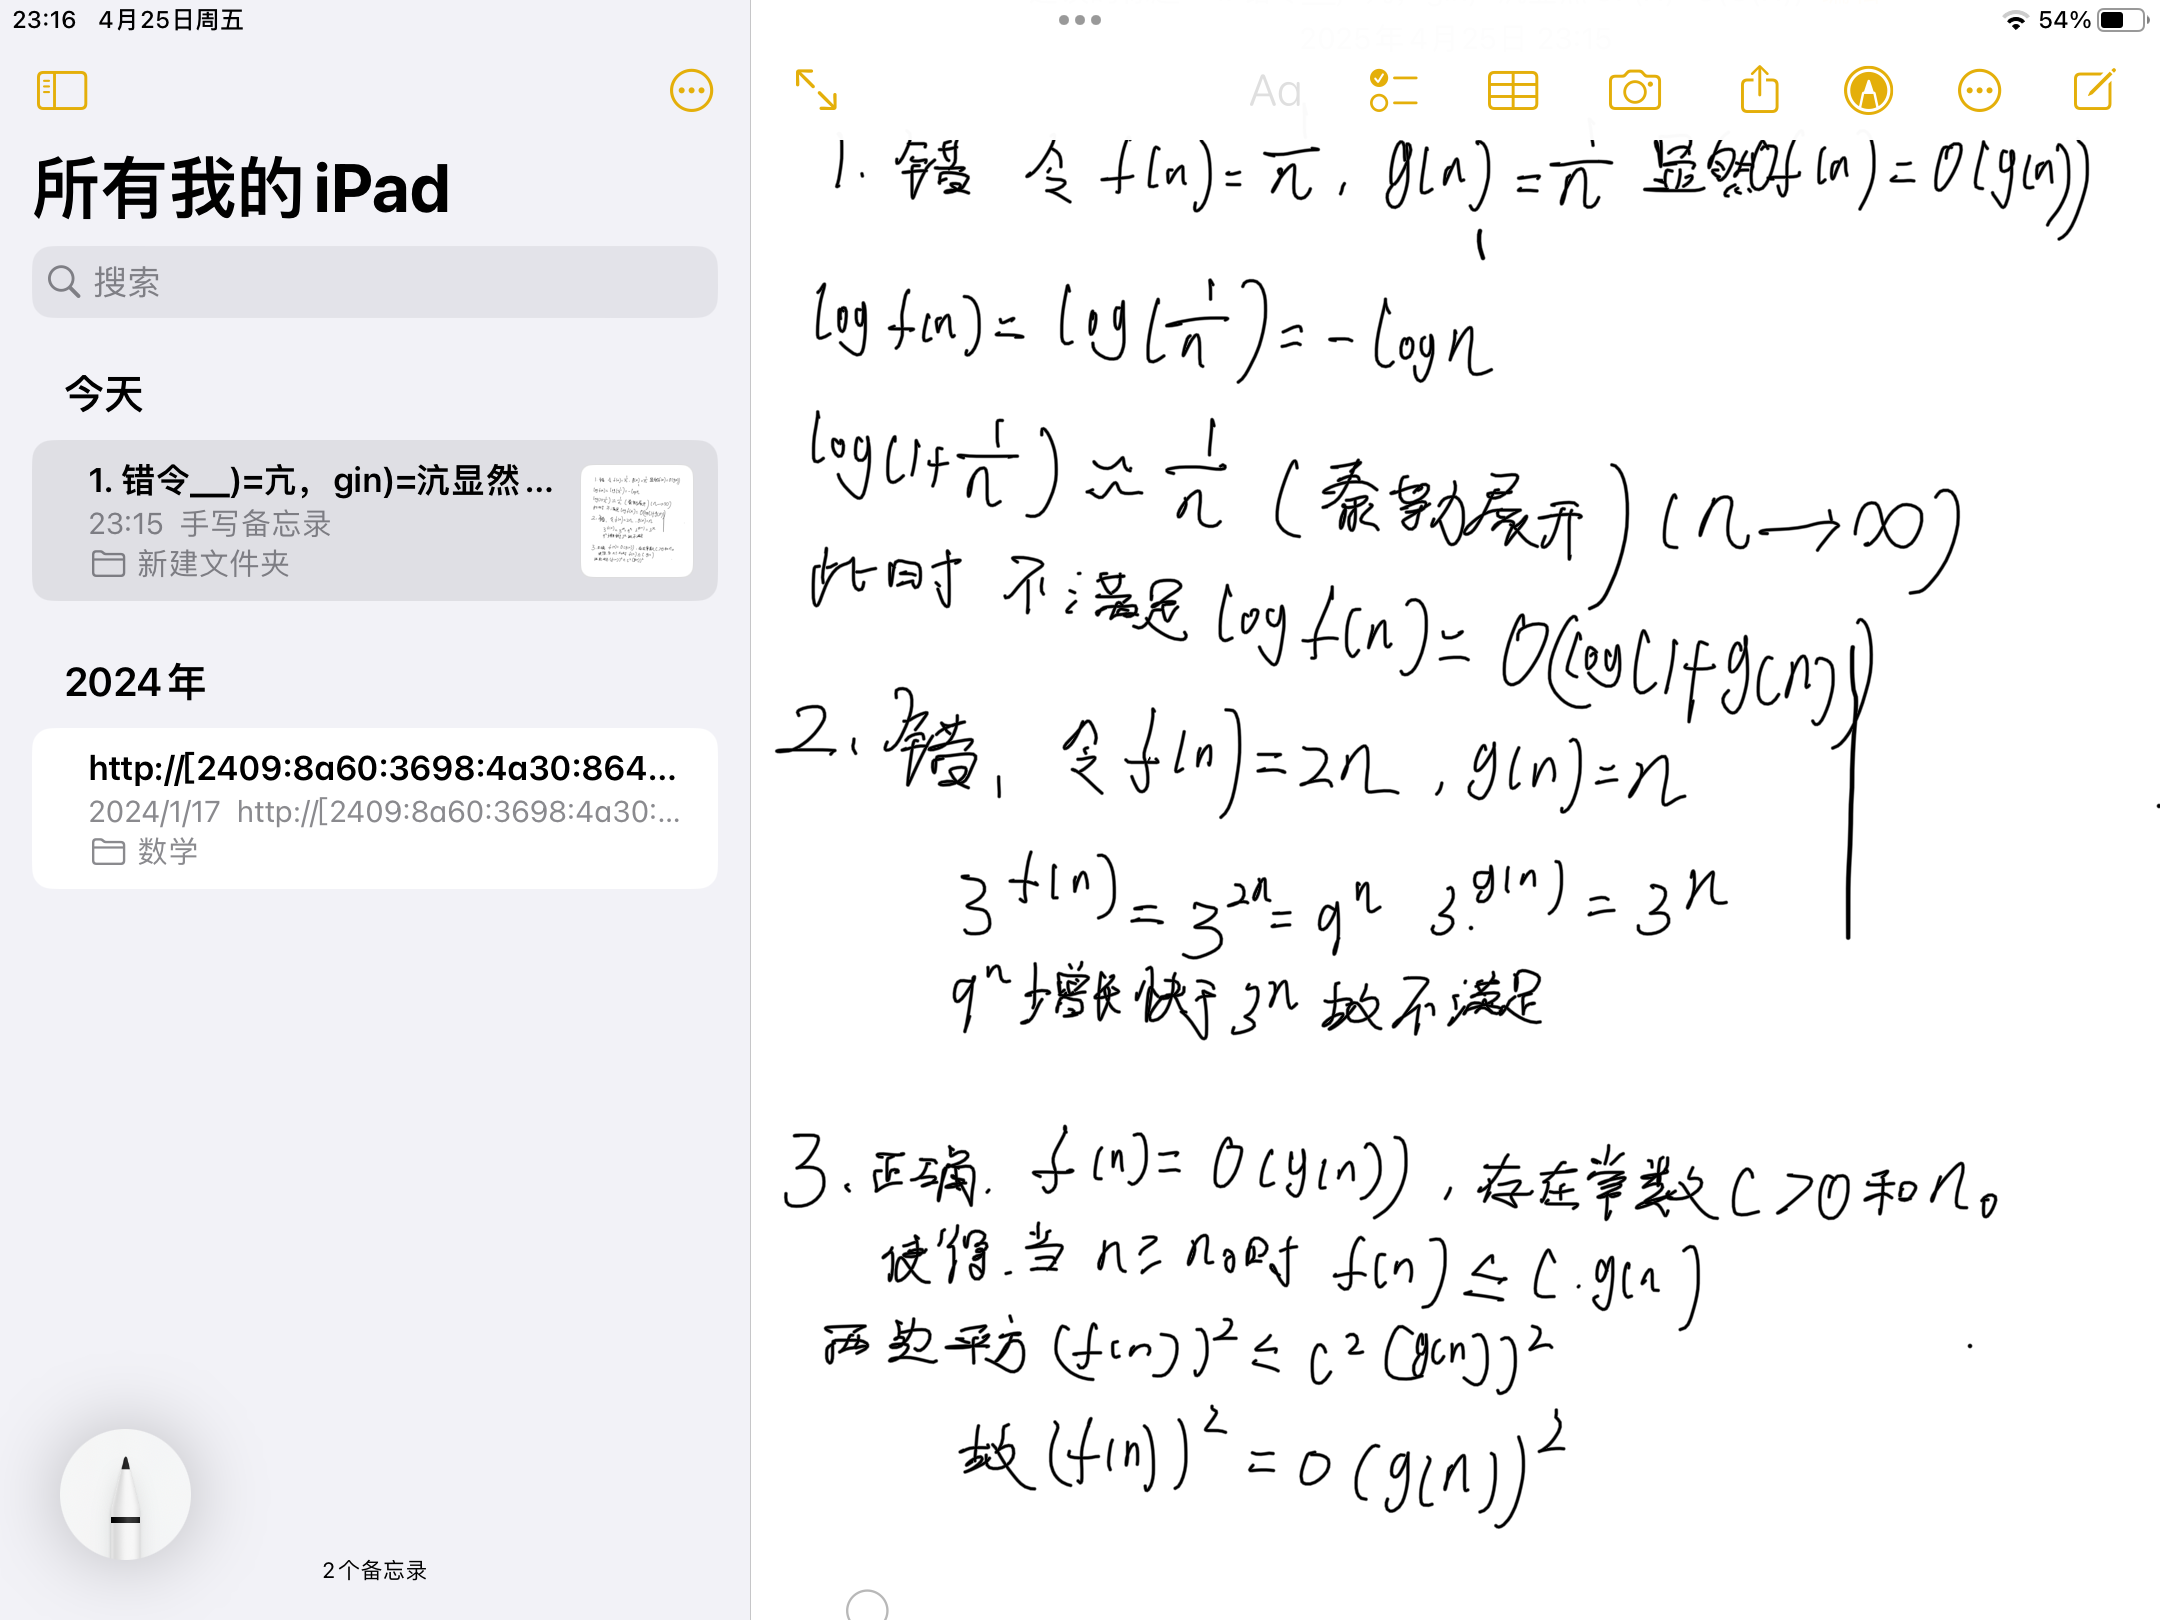 23:16 4月25日周五
54%
所有我的iPad
搜索
今天
1. 错令__)=亢，gin)=沆显然...
23:15 手写备忘录
新建文件夹
2024年
http://[2409:8a60:3698:4a30:864...
2024/1/17 http://[2409:8a60:3698:4a30:...
数学
2个备忘录
Aa
1. 错 令 f(n)=1/n, g(n)=1/n 显然f(n)=O(g(n))
log f(n)=log(1/n)=-log n
log(1+1/n)≈1/n (泰勒展开)(n→∞)
此时 不满足 log f(n)=O(log(1+g(n)))
2. 错, 令 f(n)=2n, g(n)=n
3^f(n)=3^2n=9^n 3^g(n)=3^n
9^n 增长快于 3^n 故不满足
3. 正确. f(n)=O(g(n)), 存在常数C>0和n₀
使得.当 n≥n₀时 f(n)≤C·g(n)
两边平方 (f(n))²≤C²(g(n))²
故(f(n))²=O(g(n))²